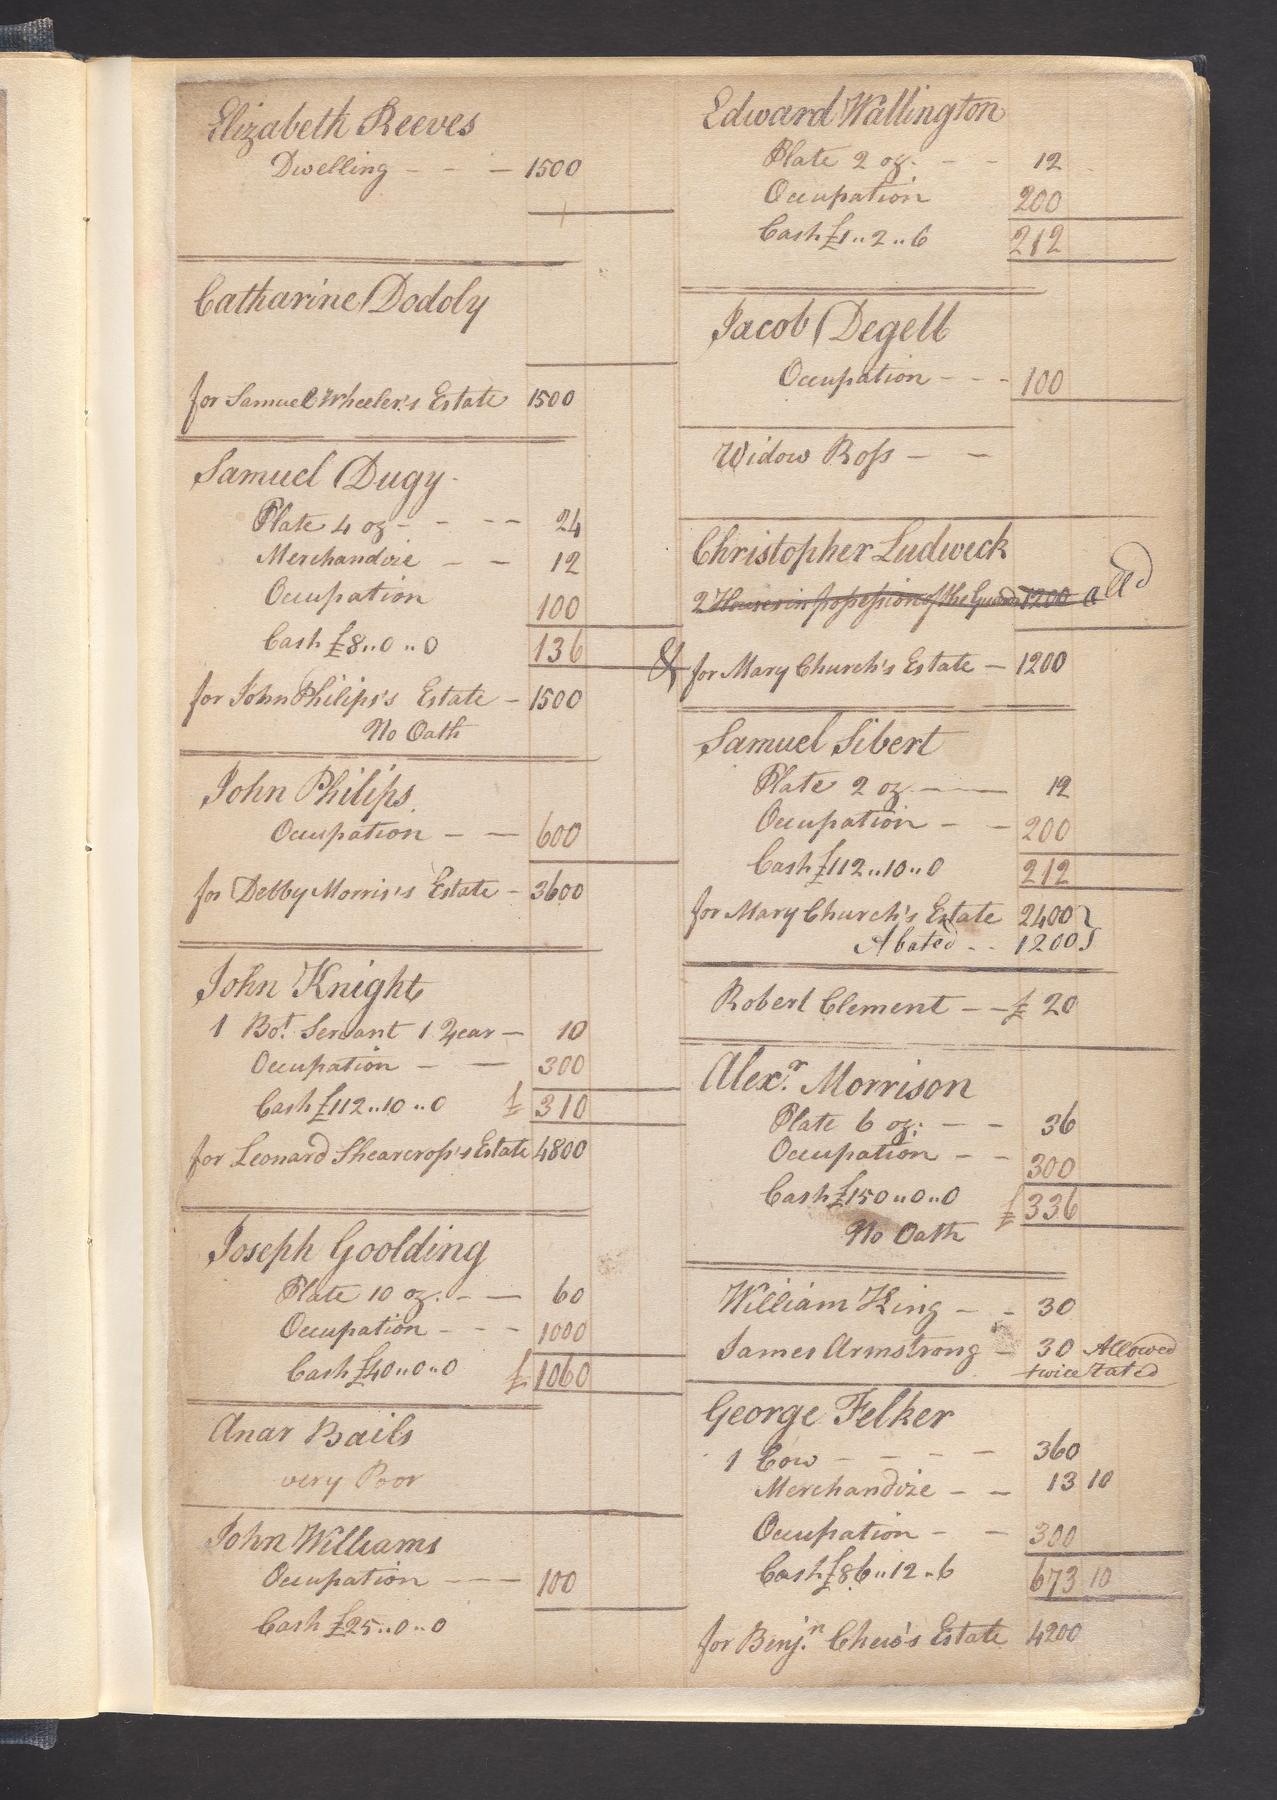 Elizabeth Reeves
Dwelling - - - 1500
Catharine Dodoly
for Samuel Wheeler's Estate 1500
Samuel Dugy -
Plate 4 oz - - - - 24
Merchandize - - 12
Occupation 100
Cash £8..0..0 136
for John Philips's Estate - 1500
No Oath
John Philips
Occupation - - 600
for Debby Morris's Estate - 3600
John Knight
1 Bot. Servant 1 Year - 10
Occupation - - 300
Cash £112..10..0 £ 310
for Leonard Shearcross's Estate 4800
Joseph Goolding
Plate 10 oz. - - 60
Occupation - - - 1000
Cash £40..0..0 £ 1060
Anar Bails
very Poor
John Williams
Occupation - - - 100
Cash £25..0..0
Edward Wallington
Plate 2 oz. - - 12
Occupation 200
Cash £1..2..6 212
Jacob Degell
Occupation - - - 100
Widow Ross - -
Christopher Ludweck
2 Houses in possession of the Guard 1200 alld
& for Mary Church's Estate - 1200
Samuel Sibert
Plate 2 oz. - - 12
Occupation - - 200
Cash £112..10..0 212
for Mary Church's Estate 2400
Abated - - 1200
Robert Clement - - £ 20
Alexr. Morrison
Plate 6 oz; - - 36
Occupation - - 300
Cash £150..0..0 £ 336
No Oath
William King - - 30
James Armstrong - 30 Allowed
twice rated
George Felker
1 Cow - - - - 360
Merchandize - - 13 10
Occupation - - 300
Cash £86..12..6 673 10
for Benjn. Chew's Estate 4200